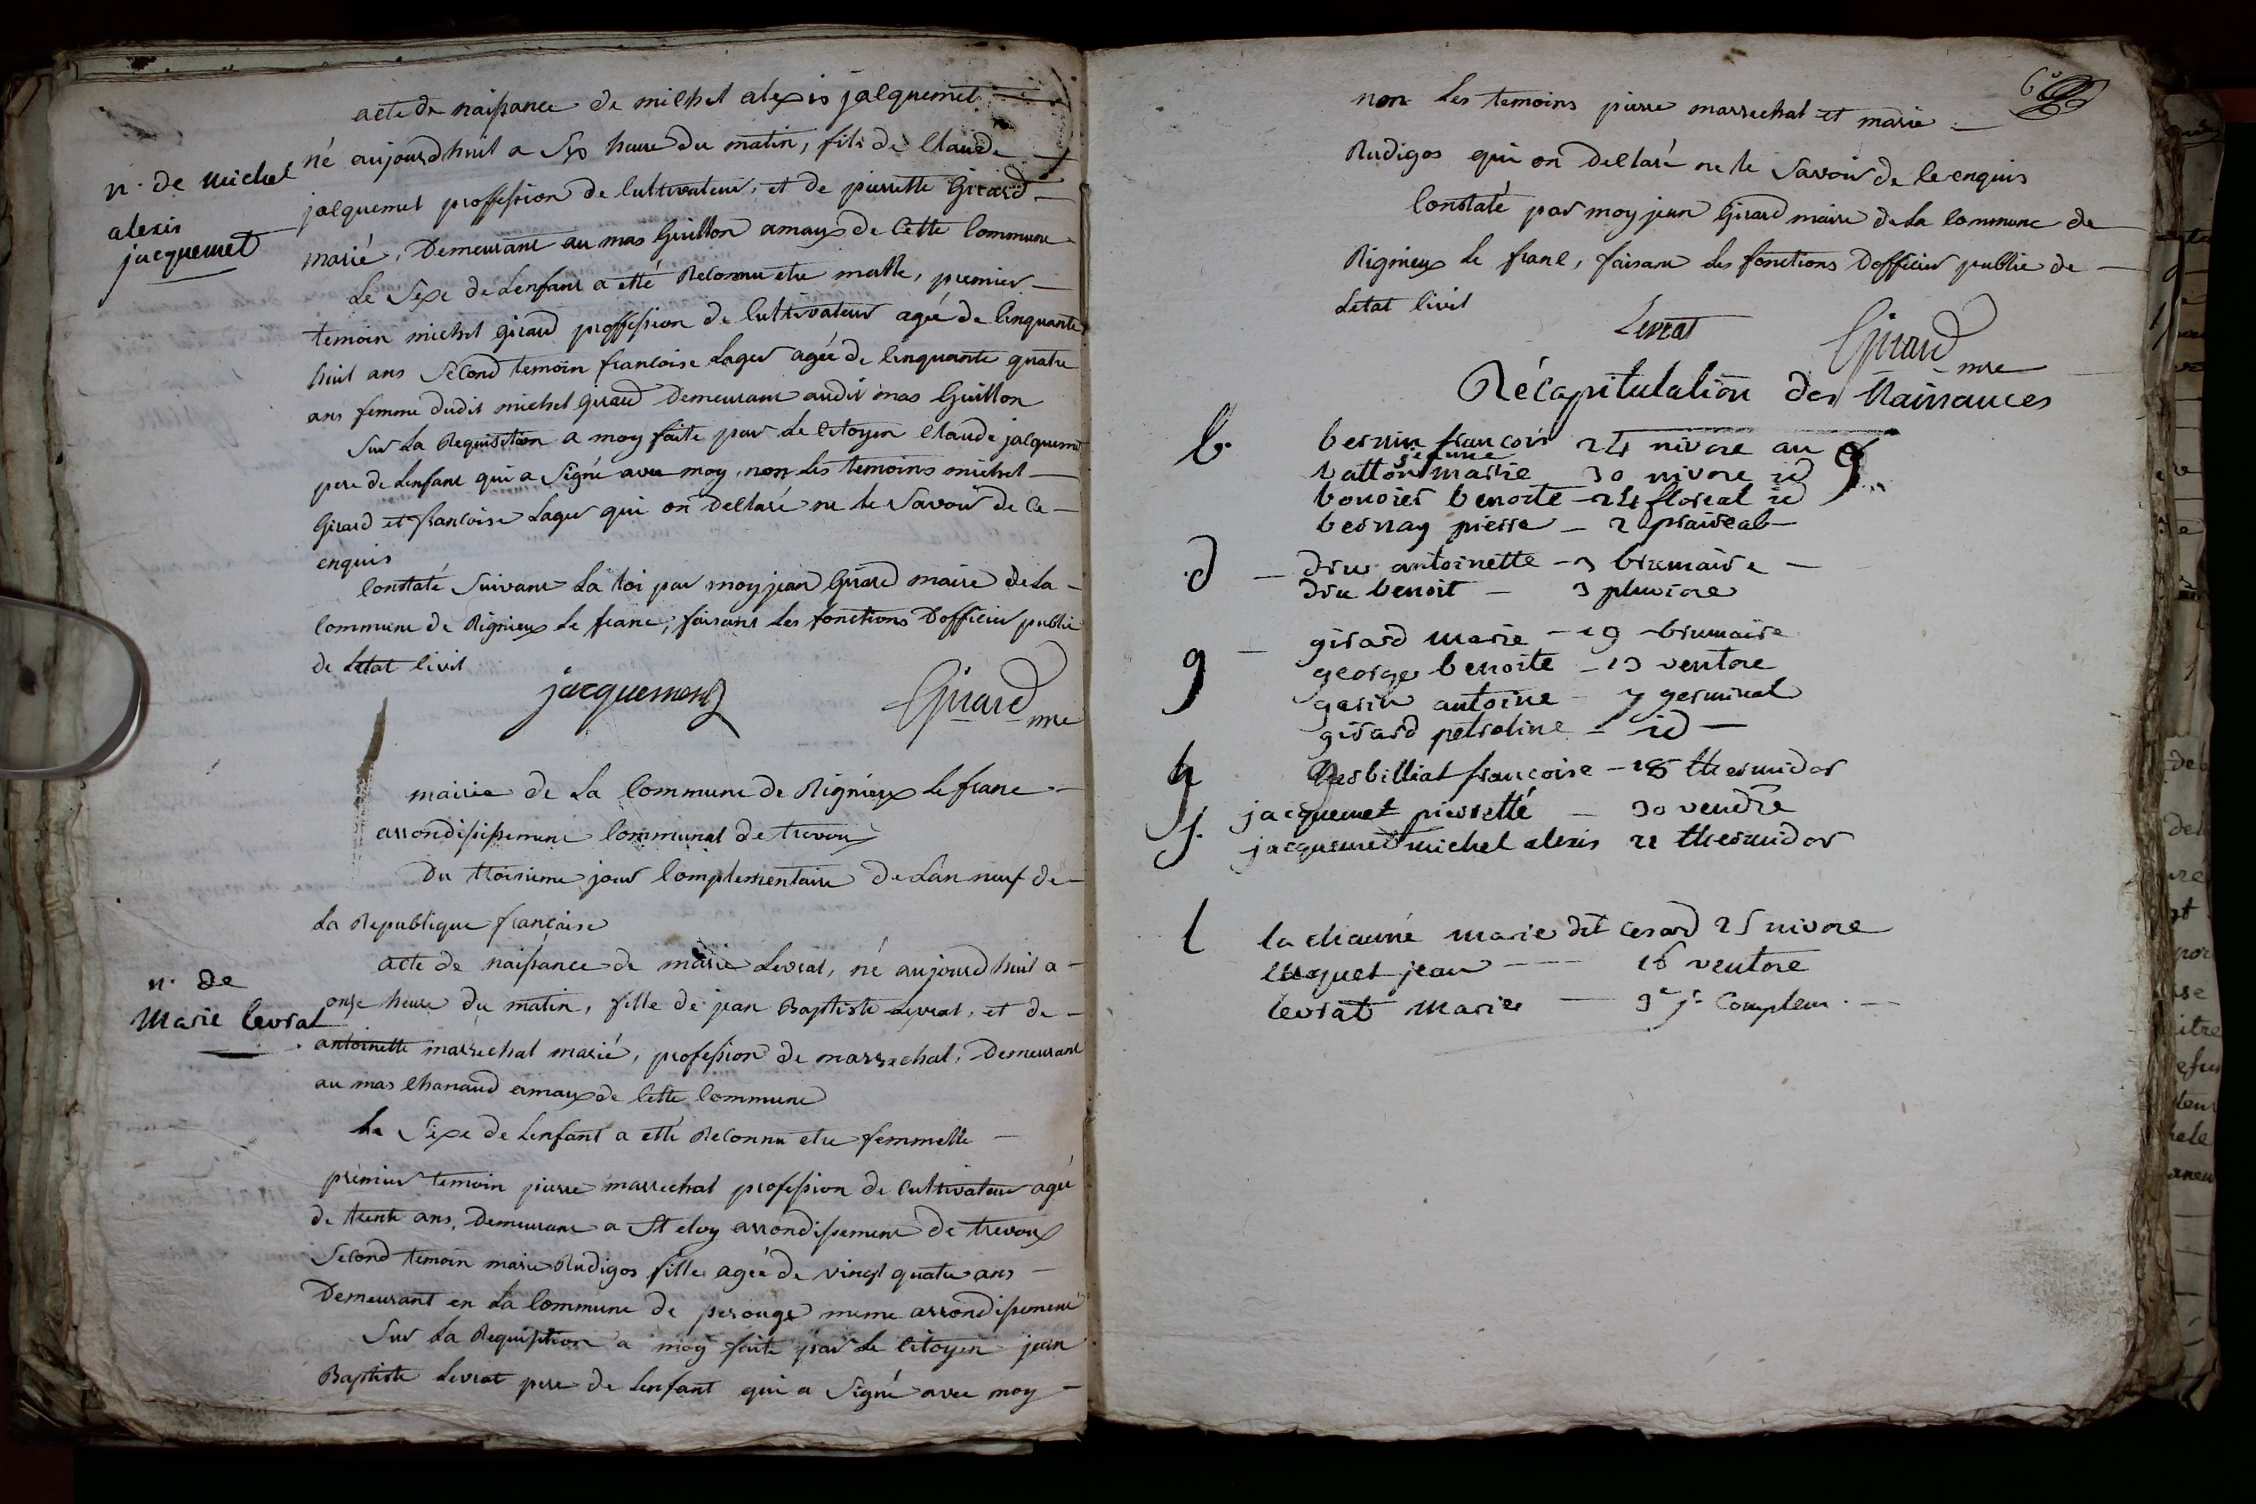 acte de naissance de michel alexis jacquemet
n. de michel
alexis
jacquemet
né aujourdhuit a six heure du matin, fils de Claude
jacquemet proffession de Cultivateur, et de pierrette Girard
marié, Demeurant au mas Guillon amaux de Cette Commune
Le Sexe de Lenfant a etté Reconnu etre malle, premier
temoin michel girard proffession de Cultivateur agée de Cinquante
huit ans Second temoin francoise Lager agée de Cinquante quatre
ans femme dudit michel girard Demeurant audit mas Guillon
Sur La Requisition a moy faite par Le Citoyen Claude jacquemet
pere de Lenfant qui a Signé avec moy, non Les temoins michel
Girard et francoise Lager qui on Declaré ne le Savoir de Ce
enquis
Constaté Suivant La Loi par moy jean Girard maire de La
Commune de Rignieux Le franc, faisant Les fonctions Dofficier public
de Letat Civil
jacquemet Girard mre
mairie de La Commune de Rignieux Le franc
arrondissement Communal de trevoux
Du troisieme jour Complementaire de Lan neuf de
La Republique francaise
n. de
Marie levrat
acte de naissance de marie Levrat, né aujourdhuit a
onze heure du matin, fille de jean Baptiste Levrat, et de
antoinette marrechal marié, profession de marrechal, Demeurant
au mas Chanaud amaux de Cette Commune
Le Sexe de Lenfant a etté Reconnu etre femmelle
premier temoin pierre marrechal profession de Cultivateur agé
de trente ans, Demeurant a St eloy arrondissement de trevoux
Second temoin marie Rudigos fille agée de vingt quatre ans
Demeurant en La Commune de perouge meme arrondissement
Sur La Requisition a moy faite par Le Citoyen jean
Baptiste Levrat pere de Lenfant qui a Signé avec moy
6e
non Les temoins pierre marrechal et marie
Rudigos qui on Declaré ne le Savoir de Ce enquis
Constaté par moy jean Girard maire de La Commune de
Rignieux Le franc, faisant Les fonctions Dofficier public de
Letat Civil
Levrat Girard mre
Récapitulation des Naissances
b. bernin francois 24 nivose an 9
batton jeanne marie 30 nivose id
bouvier benoite 24 floreal id
bernay pierre 2 prairéal
d dru antoinette 3 brumaire
dru benoit 3 pluviose
g girard marie 19 brumaire
george benoite 13 ventose
gerin antoine 7 germinal
girard petroline id
h herbilliat francoise 18 thermidor
j. jacquemet pierretté 30 vendre
jacquemet michel alexis 22 thermidor
l la chaumé marie dit Cesard 25 nivose
luquet jean 16 ventose
levrat marie 3e jr Complem.